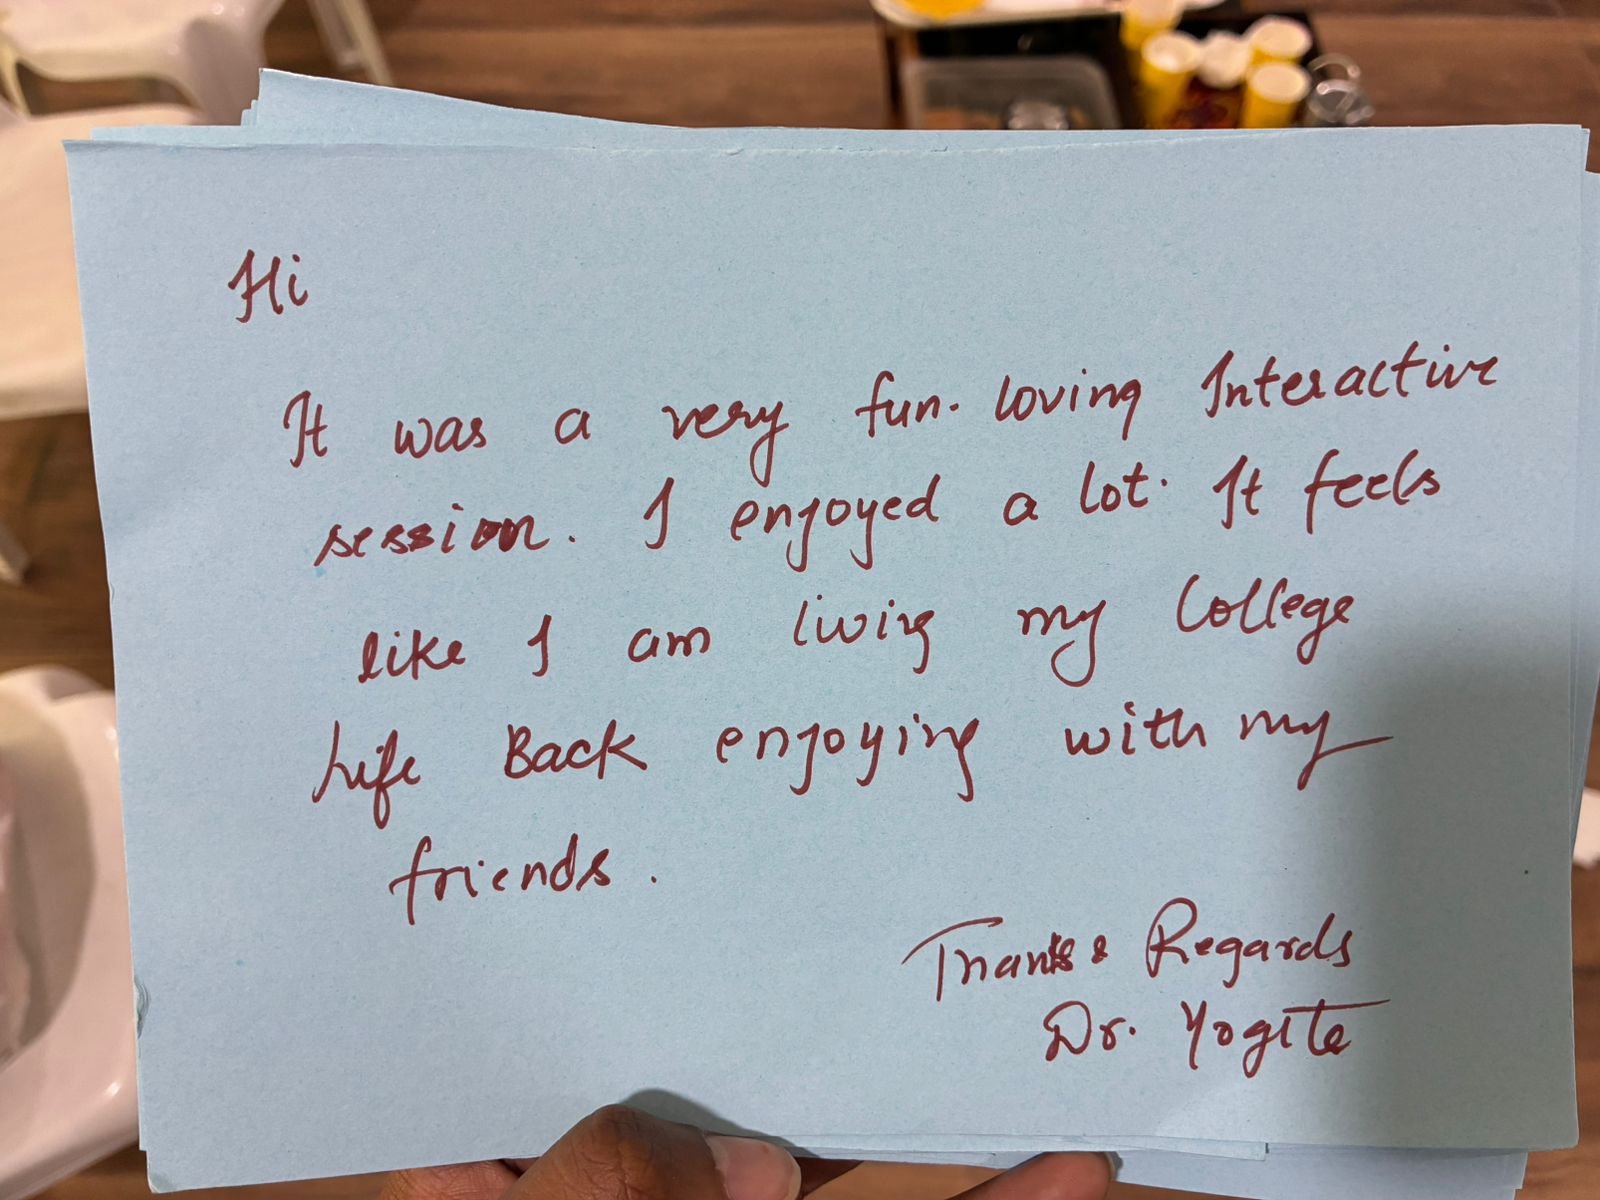 Hi
It was a very fun-loving Interactive
session. I enjoyed a lot. It feels
like I am living my College
life Back enjoying with my
friends.
Thanks & Regards
Dr. Yogita